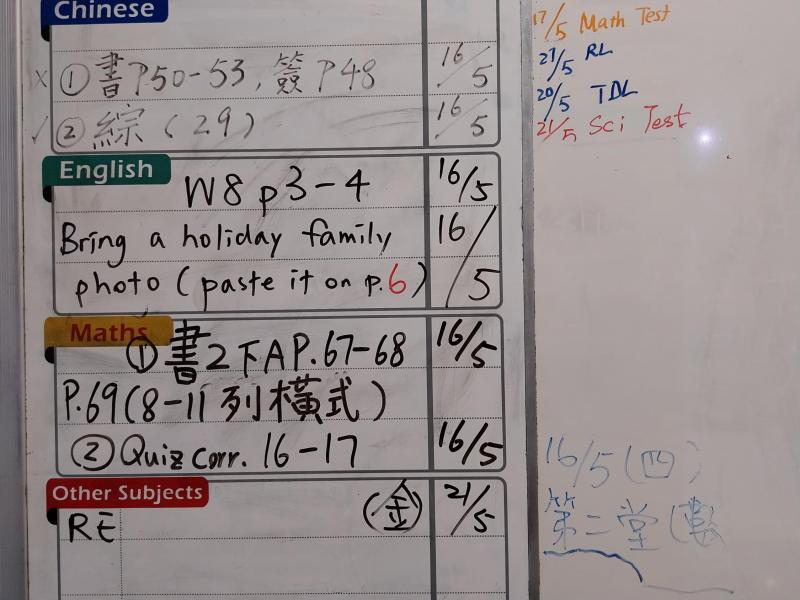 Chinese
× ① 書 P.50-53, 簽 P48 16/5
✓ ② 綜 (29) 16/5
English
W8 p3-4 16/5
Bring a holiday family
photo (paste it on p.6) 16/5
Maths
① 書2下A P.67-68 16/5
P.69 (8-11 列橫式)
② Quiz corr. 16-17 16/5
Other Subjects
RE (金) 21/5
17/5 Math Test
/5 RL
20/5 TDL
21/5 Sci Test
16/5 (四)
第二堂 (